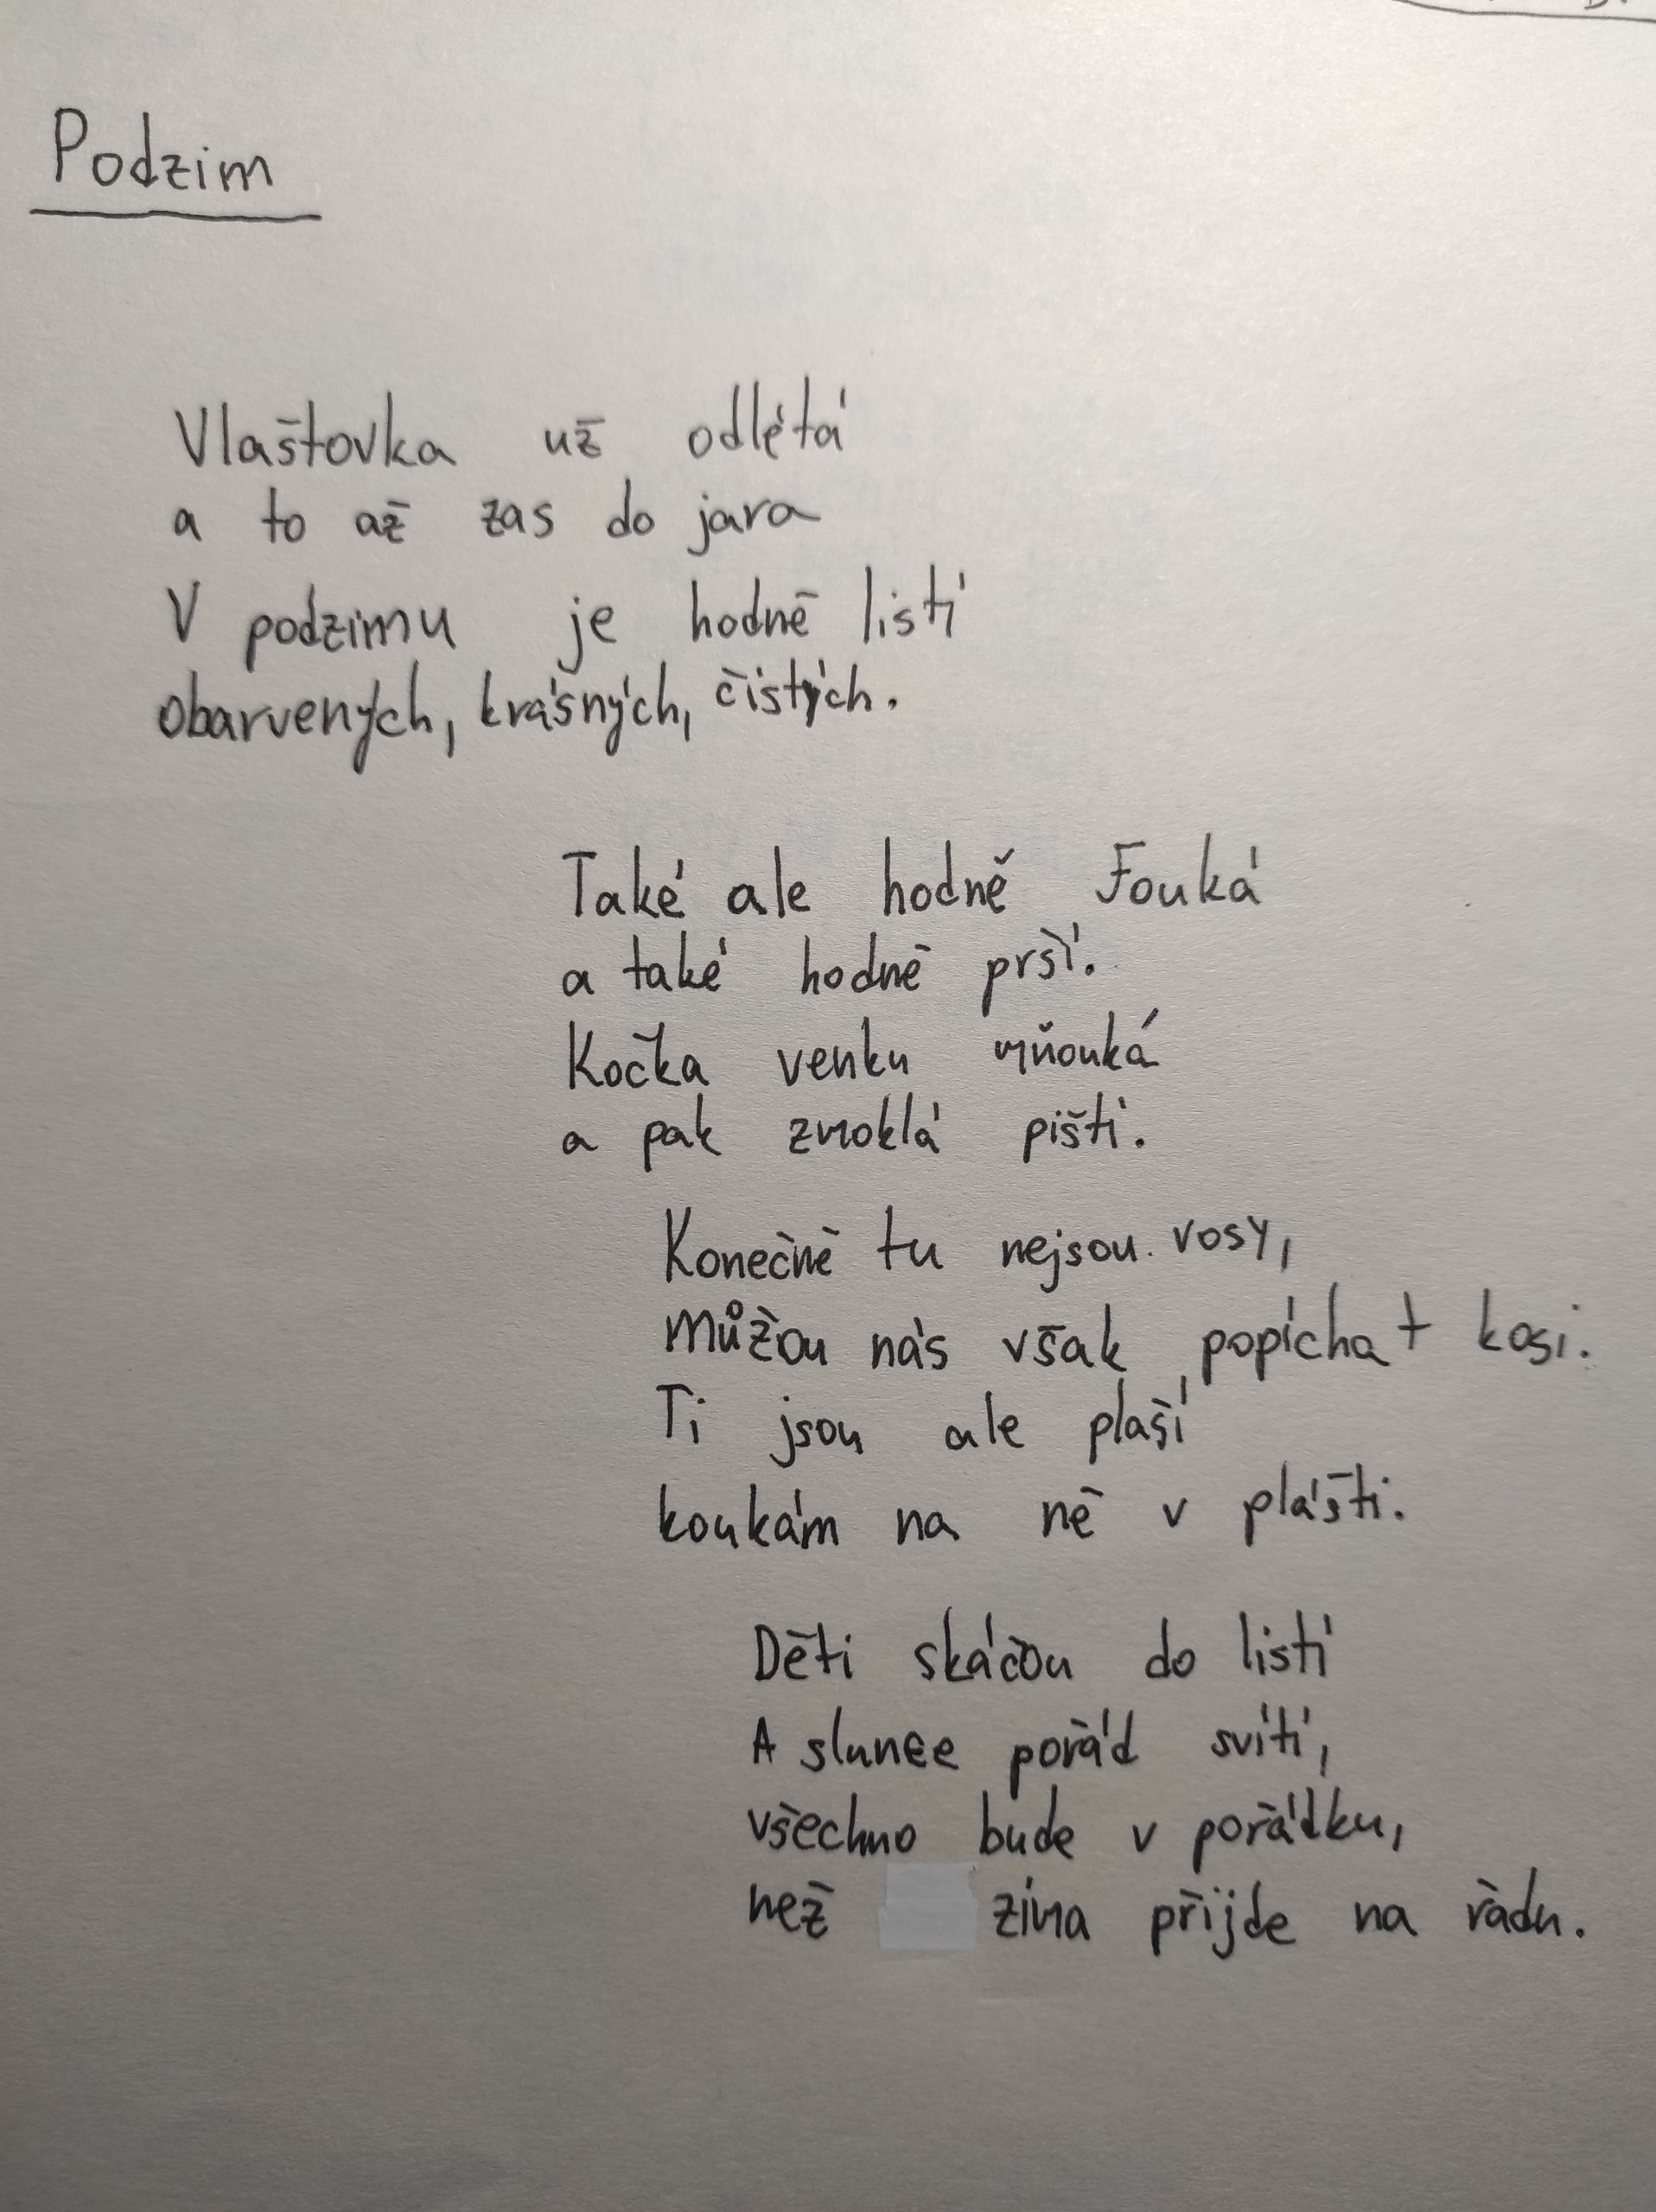 Podzim
Vlaštovka už odlétá
a to až zas do jara
V podzimu je hodně listí
obarvených, krásných, čistých.
Také ale hodně Fouká
a také hodně prší.
Kočka venku mňouká
a pak zmoklá piští.
Konečně tu nejsou vosy,
můžou nás však popíchat kosi.
Ti jsou ale plaší
koukám na ně v plášti.
Děti skáčou do listí
A slunce pořád svítí,
všechno bude v pořádku,
než zima přijde na řadu.